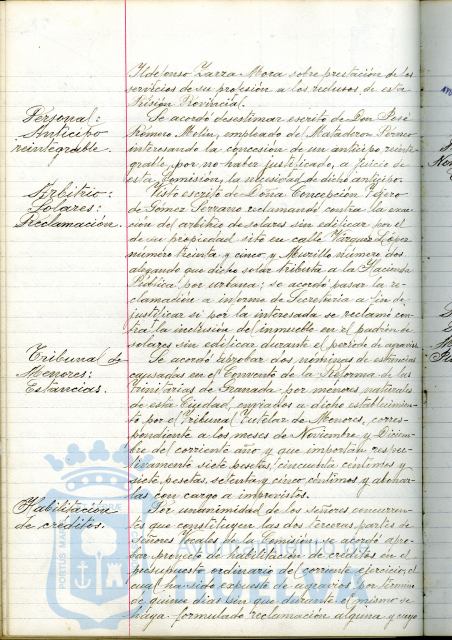 Ildefonso Zarza Mora sobre prestación de los
servicios de su profesión a los reclusos de esta
Prisión Provincial.
Personal:
Anticipo
reintegrable.
Se acordó desestimar escrito de Don José
Romero Molin, empleado del Matadero
interesando la concesión de un anticipo reinte-
grable, por no haber justificado, a juicio de
esta Comisión, la necesidad de dicho antcipo.
Arbitrio:
Solares:
Reclamación.
Visto escrito de Doña Concepción Tejero
de Gómez Serrano reclamando contra la exac-
ción del arbitrio de solares sin edificar por el
de su propiedad sito en calle Vázquez López
número treinta y cinco y Murillo número dos
alegando que dicho solar tributa a la Hacienda
Pública por urbana; se acordó pasar la re-
clamación a informe de Secretaría a fin de
justificar si por la interesada se reclamó con-
tra la inclusión del inmueble en el padrón de
solares sin edificar durante el período de agravios.
Tribunal de
Menores:
Estancias.
Se acordó aprobar dos nóminas de estancias
causadas en el Convento de la Reforma de las
Trinitarias de Granada por menores naturales
de esta Ciudad, enviados a dicho establecimien-
to por el Tribunal Tutelar de Menores, corres-
pondiente a los meses de Noviembre y Diciem-
bre del corriente año y que importan respec-
tivamente siete pesetas, cincuenta céntimos y
siete pesetas, setenta y cinco céntimos y abonar-
las con cargo a imprevistos.
Habilitación
de créditos.
Por unanimidad de los señores concurren-
tes que constituyen las dos terceras partes de
señores Vocales de la Comisión, se acordó apro-
bar proyecto de habilitación de créditos en el
presupuesto ordinario del corriente ejercicio, el
cual ha sido expuesto de agravios por término
de quince días sin que durante el mismo se
haya formulado reclamación alguna y cuyo